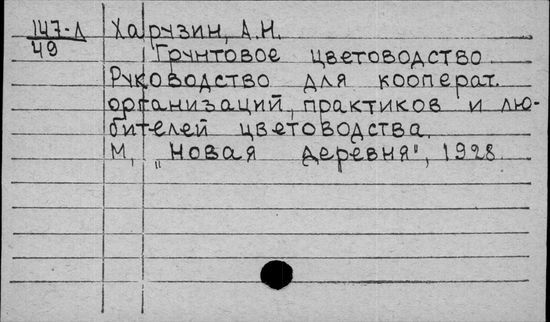 147-Л Харузин, А.Н.
49 Грунтовое цветоводство.
Руководство для кооперат.
организаций, практиков и лю-
бителей цветоводства.
М, „Новая деревня", 1928.